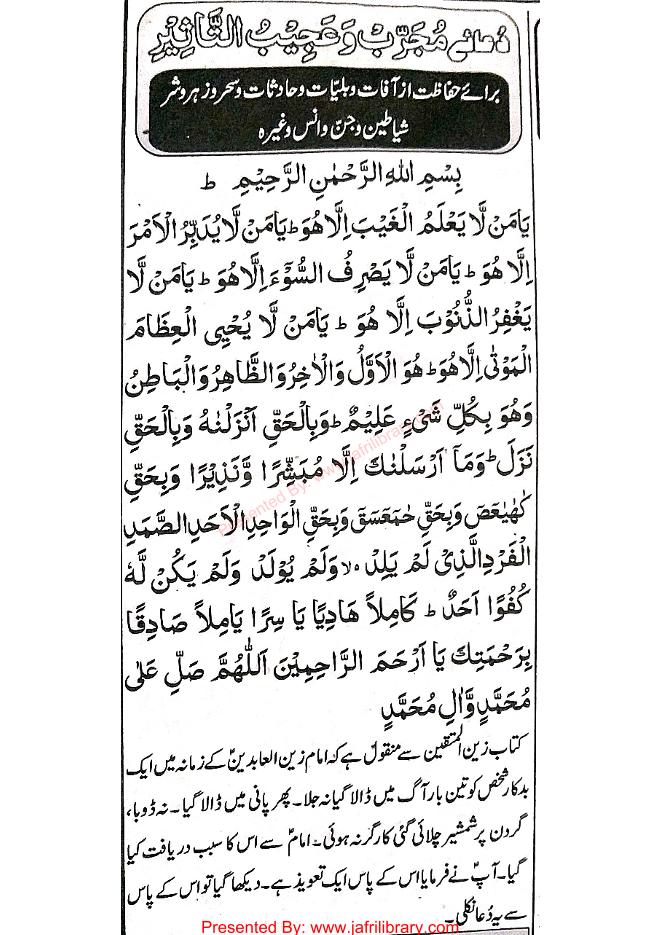 دُعائے مُجَرَّبْ وَعَجِیْبُ التَّاثِیْرِ
برائے حفاظت از آفات و بلیّات و حادثات و سحر و زہر و شر
شیاطین و جنّ و انس وغیرہ
بِسْمِ اللهِ الرَّحْمٰنِ الرَّحِيْمِ ط
يَا مَنْ لَّا يَعْلَمُ الْغَيْبَ اِلَّا هُوَ ط يَا مَنْ لَّا يُدَبِّرُ الْاَمْرَ
اِلَّا هُوَ ط يَا مَنْ لَّا يَصْرِفُ السُّوْٓءَ اِلَّا هُوَ ط يَا مَنْ لَّا
يَغْفِرُ الذُّنُوْبَ اِلَّا هُوَ ط يَا مَنْ لَّا يُحْيِى الْعِظَامَ
الْمَوْتٰى اِلَّا هُوَ ط هُوَ الْاَوَّلُ وَالْاٰخِرُ وَالظَّاهِرُ وَالْبَاطِنُ
وَهُوَ بِكُلِّ شَىْءٍ عَلِيْمٌ ط وَبِالْحَقِّ اَنْزَلْنٰهُ وَبِالْحَقِّ
نَزَلَ ط وَمَا اَرْسَلْنٰكَ اِلَّا مُبَشِّرًا وَّنَذِيْرًا وَبِحَقِّ
كٓهٰيٰعٓصٓ وَبِحَقِّ حٰمٓعٓسٓقٓ وَبِحَقِّ الْوَاحِدِ الْاَحَدِ الصَّمَدِ
الْفَرْدِ الَّذِىْ لَمْ يَلِدْ ۵لا وَلَمْ يُوْلَدْ وَلَمْ يَكُنْ لَّهٗ
كُفُوًا اَحَدٌ ط كَامِلاً هَادِيًا يَا سِرًا يَامِلاً صَادِقًا
بِرَحْمَتِكَ يَا اَرْحَمَ الرَّاحِمِيْنَ اَللّٰهُمَّ صَلِّ عَلٰى
مُحَمَّدٍ وَّاٰلِ مُحَمَّدٍ
کتاب زین المتقین سے منقول ہے کہ امام زین العابدینؑ کے زمانہ میں ایک
بدکار شخص کو تین بار آگ میں ڈالا گیا نہ جلا۔ پھر پانی میں ڈالا گیا۔ نہ ڈوبا،
گردن پر شمشیر چلائی گئی کارگر نہ ہوئی۔ امامؑ سے اس کا سبب دریافت کیا
گیا۔ آپؑ نے فرمایا اس کے پاس ایک تعویذ ہے۔ دیکھا گیا تو اس کے پاس
سے یہ دُعا نکلی۔
Presented By: www.jafrilibrary.com
Presented By: www.jafrilibrary.com